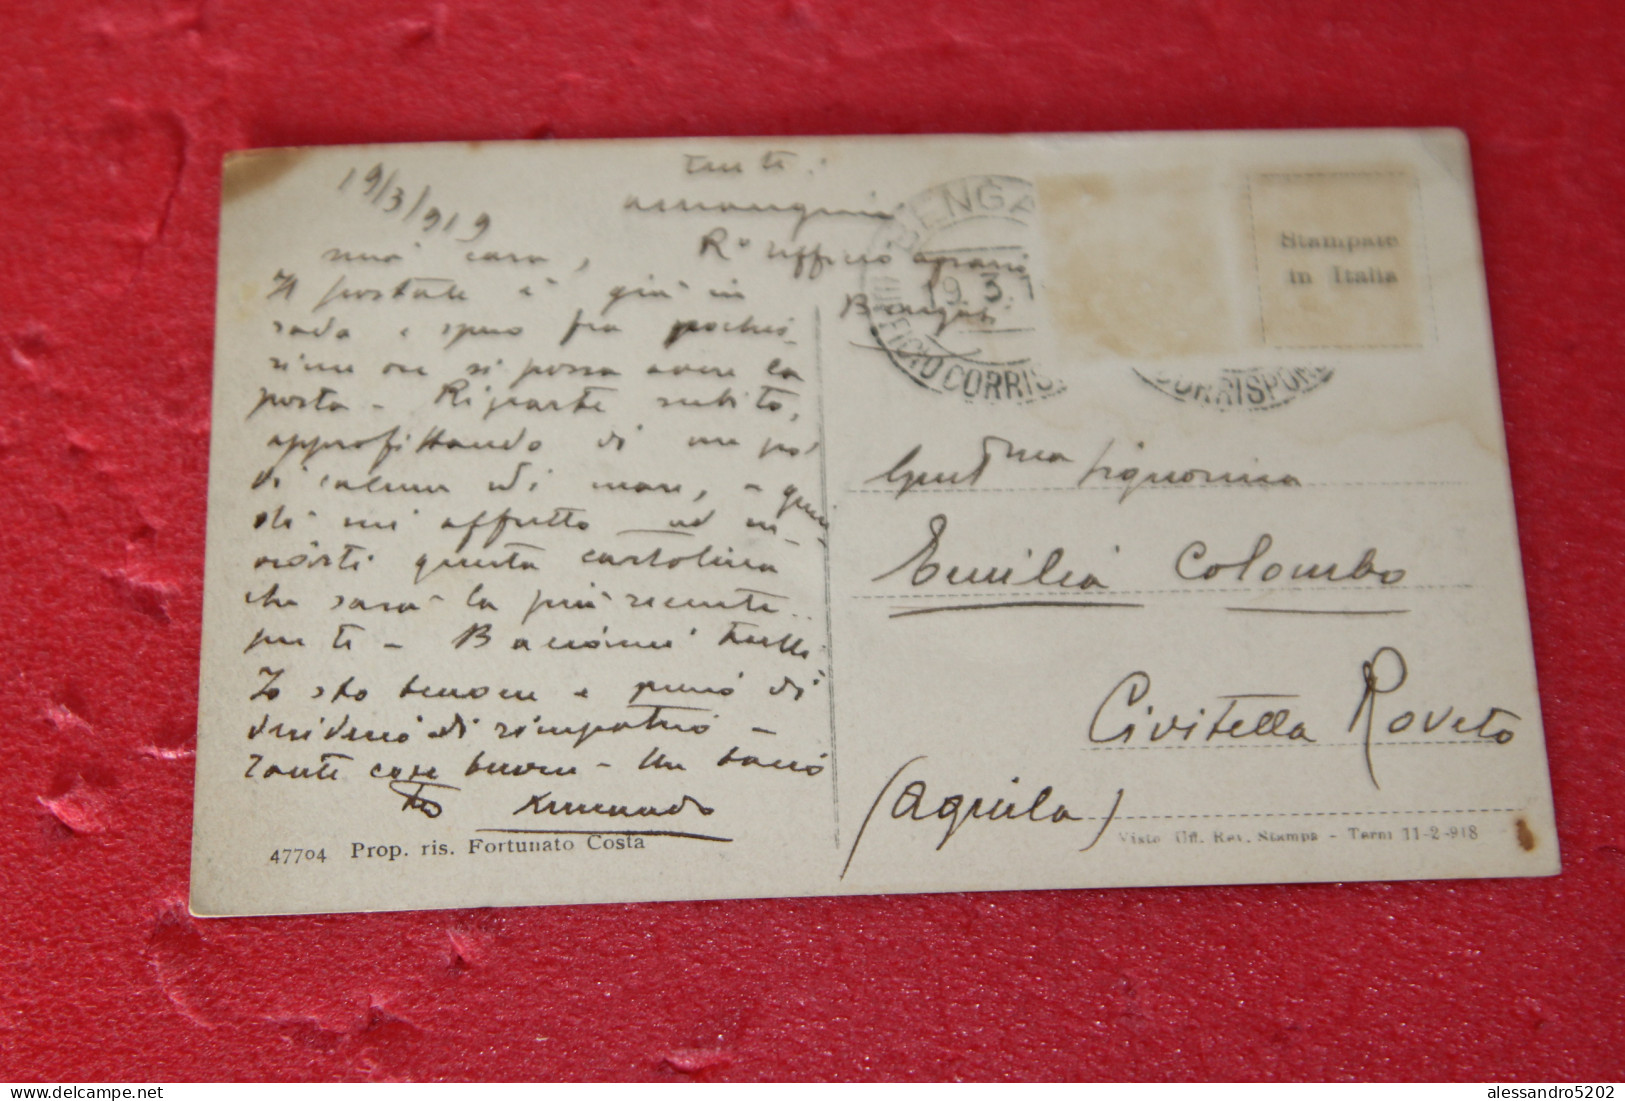 19/3/919
mia cara,
Il postale è già in
rada e spero fra pochis-
sime ore si possa avere la
posta - Riparte subito,
approfittando di un po'
di calma di mare, e quin-
di mi affretto ad in-
viarti questa cartolina
che sarà la più recente
per te - Baciami tutti
Io sto benone e pieno di
desiderio di rimpatrio -
Tante cose buone - Un bacio
Tuo
47704 Prop. ris. Fortunato Costa
R° ufficio agrario
Bengasi
BENGA
19.3.1
UFFICIO CORRIS
CORRISPOND
Stampate
in Italia
Gent.ma Signorina
Emilia Colombo
Civitella Roveto
(Aquila)
Visto Uff. Rev. Stampa - Terni 11-2-918
alessandro5202